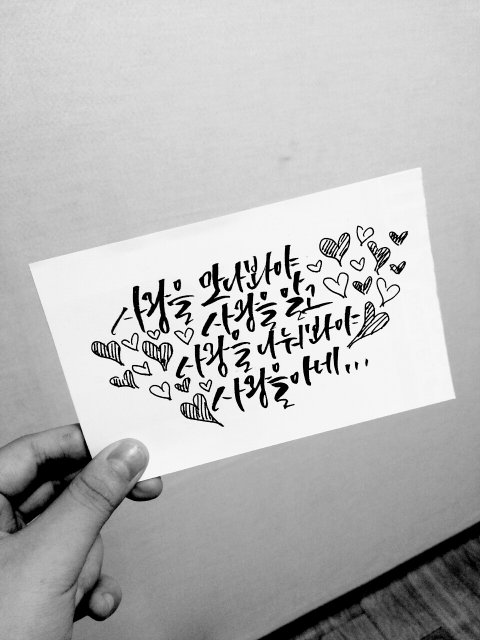 사랑을 만나봐야
사랑을 알고
사랑을 나눠봐야
사랑을 아네...